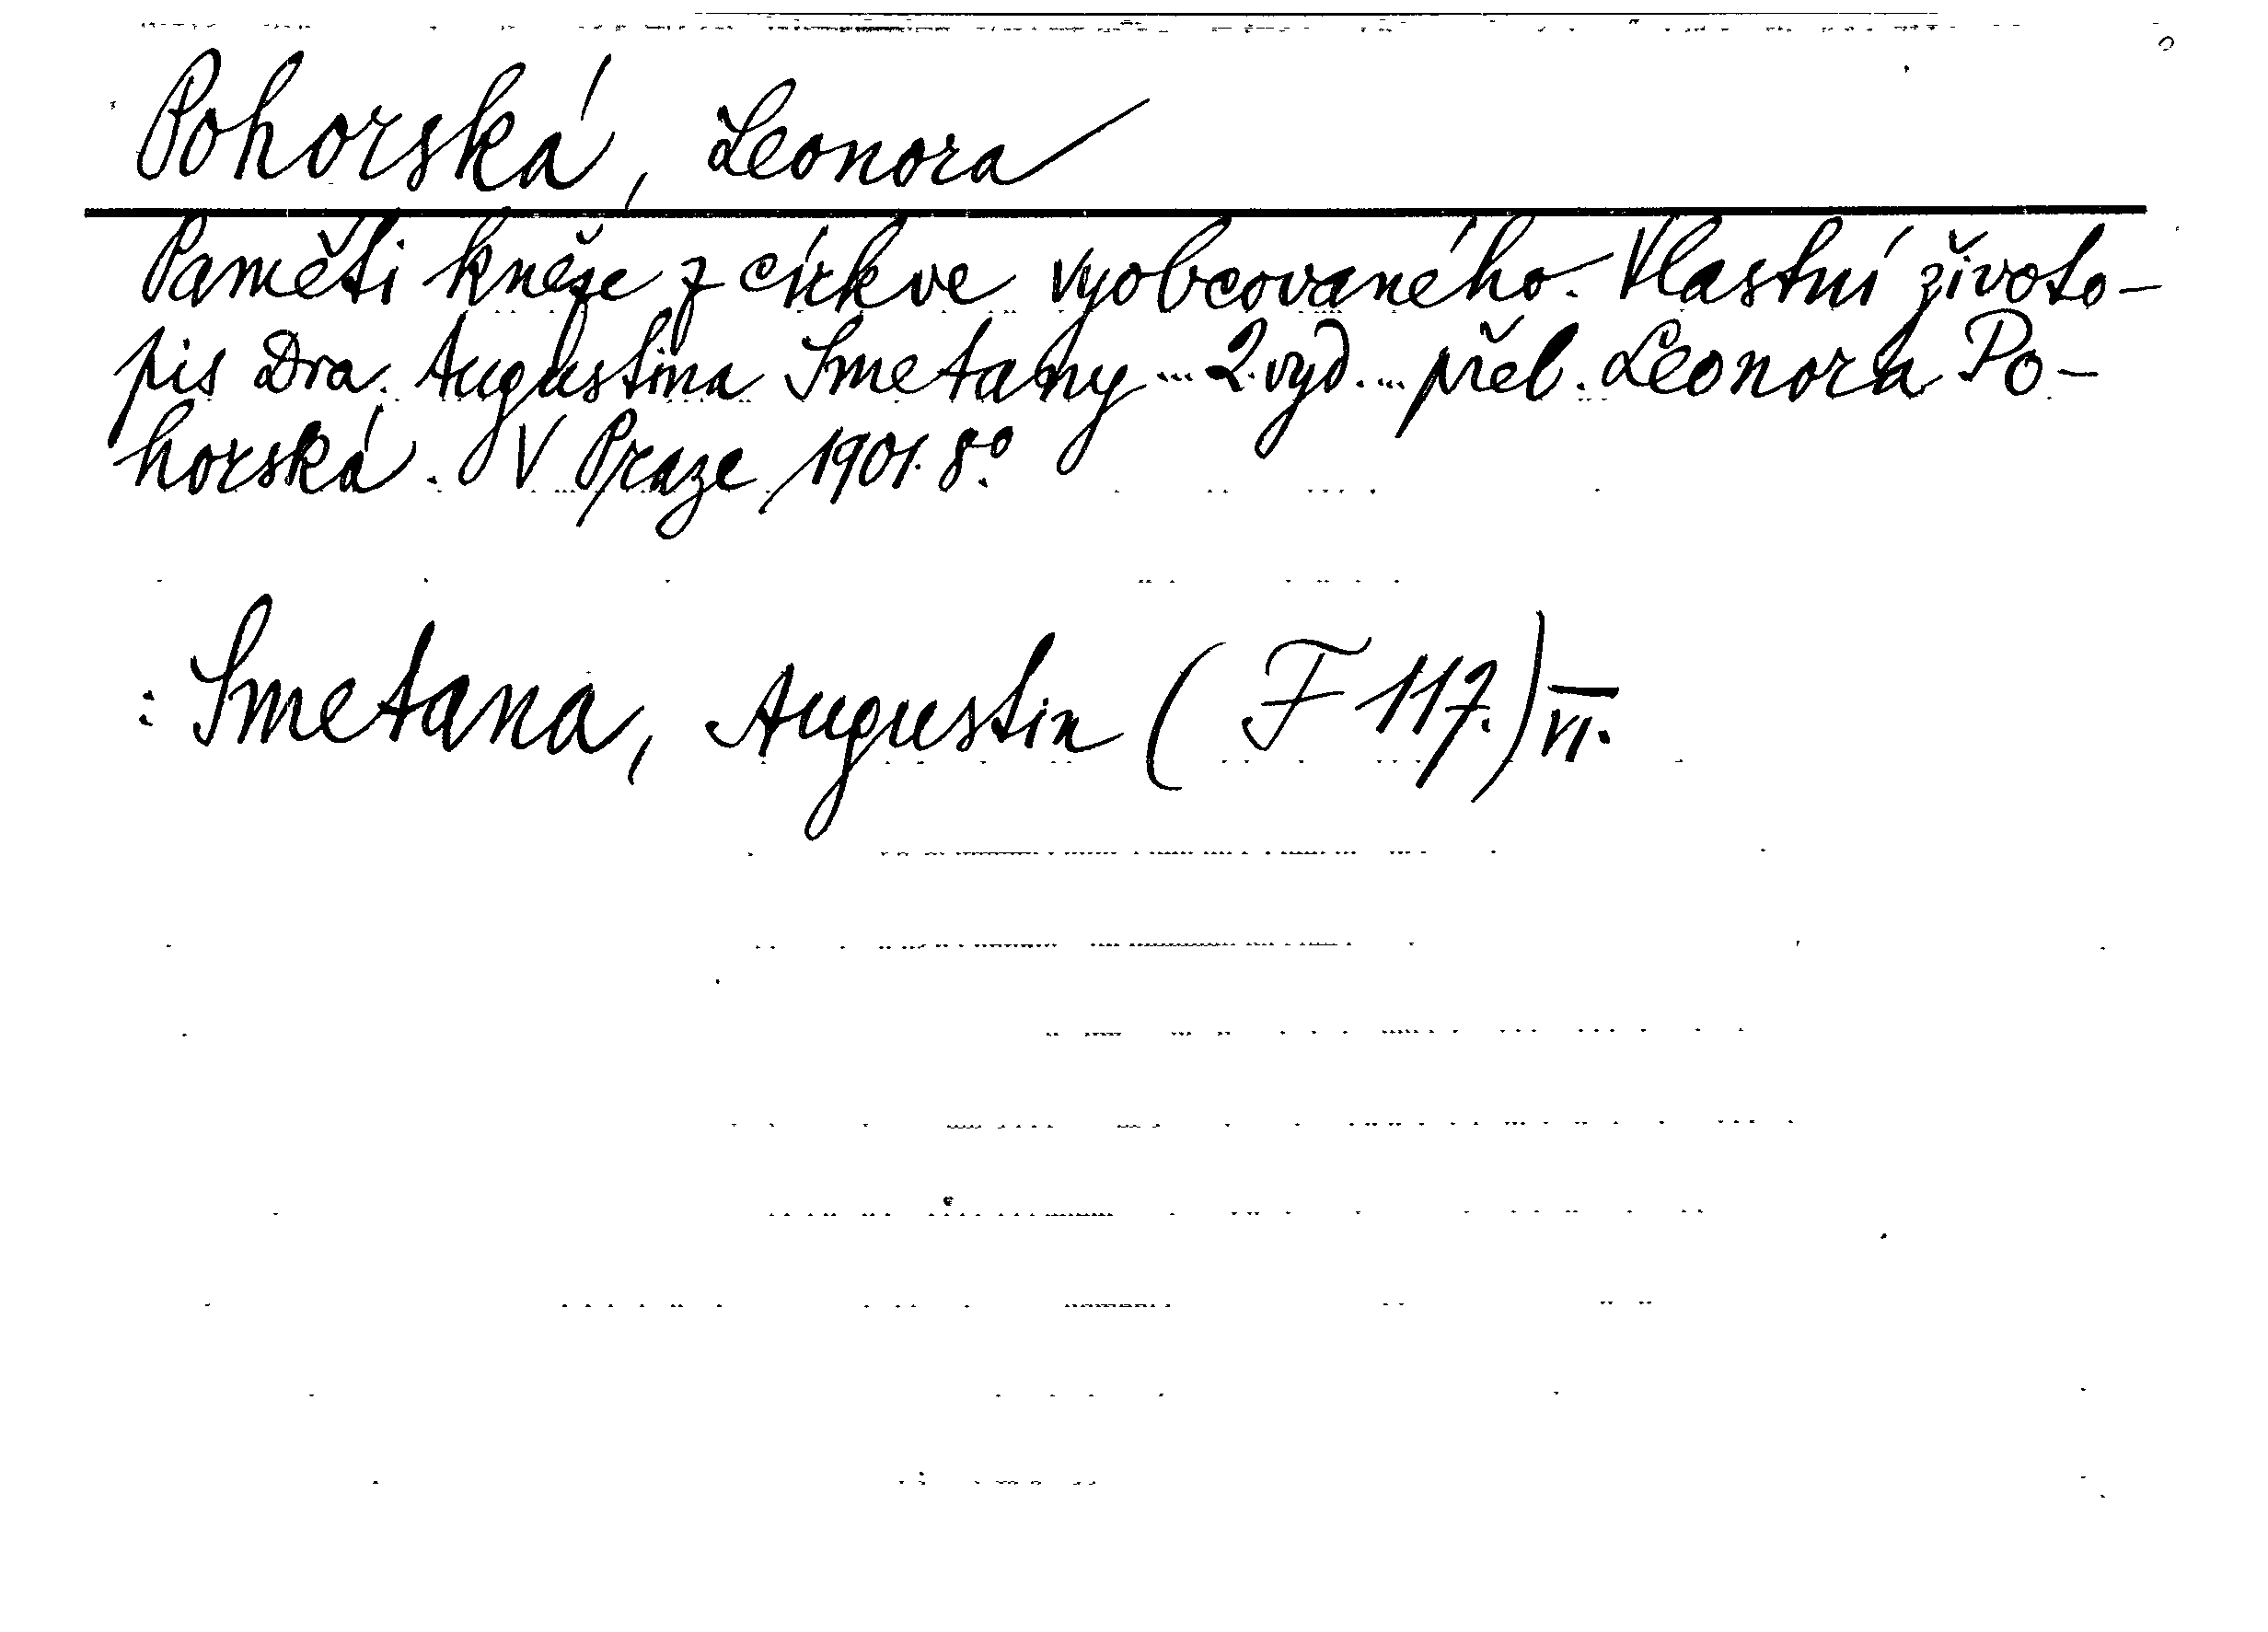 Pohorská, Leonora
Paměti kněze z církve vyobcovaného. Vlastní životo-
pis Dra. Augustina Smetany ... 2. vyd. ... přel. Leonora Po-
horská. V Praze 1901. 8°.
: Smetana, Augustin (F 117.) VI.